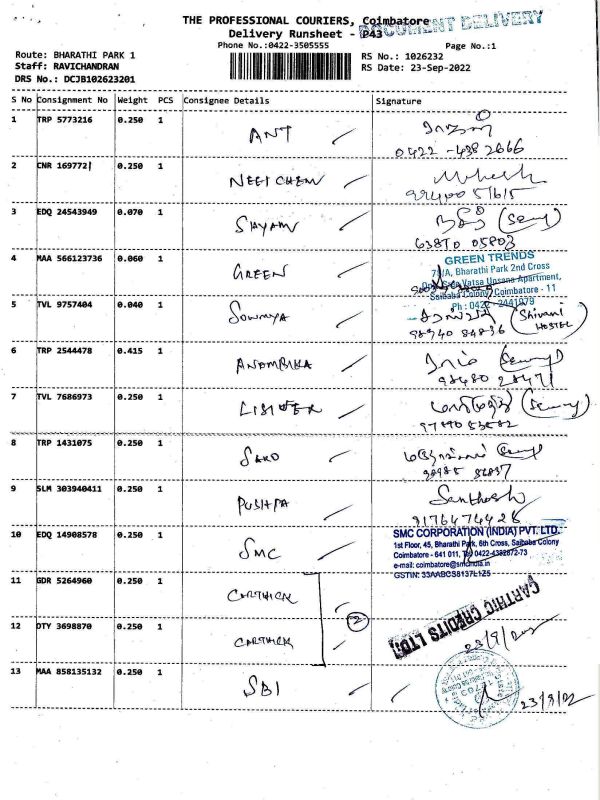 THE PROFESSIONAL COURIERS, Coimbatore
DOCUMENT DELIVERY
Delivery Runsheet - P43
Phone No.:0422-3505555 Page No.:1
Route: BHARATHI PARK 1 RS No.: 1026232
Staff: RAVICHANDRAN RS Date: 23-Sep-2022
DRS No.: DCJB102623201
S No Consignment No Weight PCS Consignee Details Signature
1 TRP 5773216 0.250 1 ANT
0422 - 438 2666
2 CNR 169772 0.250 1 NEETCHEM Mukesh
3 EDQ 24543949 0.070 1 SHYAM
63870 05803
4 MAA 566123736 0.060 1 GREEN
GREEN TRENDS
Bharathi Park 2nd Cross
Apartment,
Saibaba Colony, Coimbatore - 11
Ph : 0422-2441079
5 TVL 9757404 0.040 1 SOWMYA
(Shivani HOSTEL)
98940 84836
6 TRP 2544478 0.415 1 ANAMBIKA
98480 28471
7 TVL 7686973 0.250 1
8 TRP 1431075 0.250 1 SAKO
9 SLM 303940411 0.250 1 PUSHPA Santhosh
9176474428
10 EDQ 14908578 0.250 1 SMC
SMC CORPORATION (INDIA) PVT. LTD.
1st Floor, 45, Bharathi Park, 6th Cross, Saibaba Colony
Coimbatore - 641 011, Tel 0422-4382872-73
e-mail: coimbatore@smcindia.in
GSTIN: 33AABCS8137L1Z5
11 GDR 5264960 0.250 1 CARTHICK
2
CARTHIC CREDITS LTD.
12 DTY 3698870 0.250 1 CARTHICK
23/9/2022
13 MAA 858135132 0.250 1 SBI
23/9/22